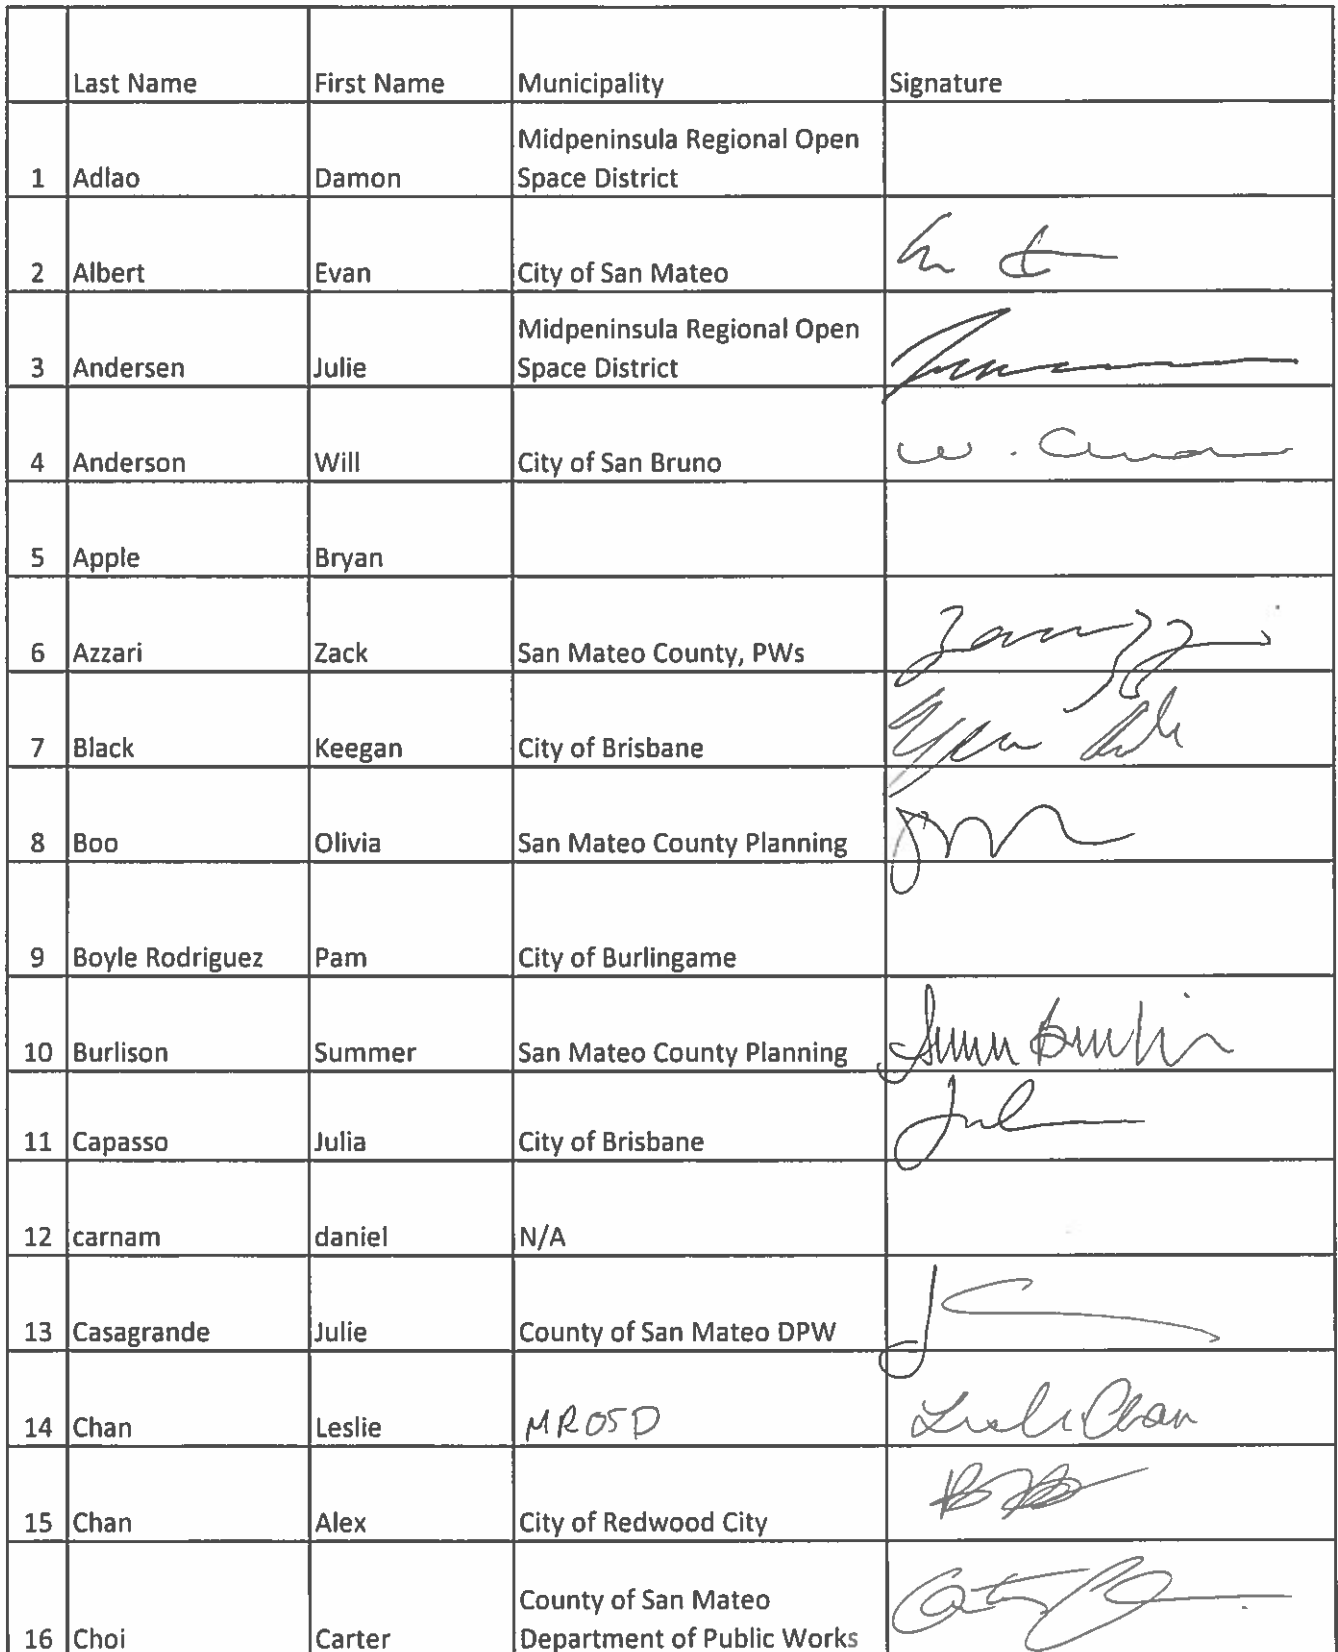 Last Name First Name Municipality Signature
Midpeninsula Regional Open
1 Adlao Damon Space District
2 Albert Evan City of San Mateo
Midpeninsula Regional Open
3 Andersen Julie Space District
4 Anderson Will City of San Bruno
W.
5 Apple Bryan
6 Azzari Zack San Mateo County, PWs
7 Black Keegan City of Brisbane
8 Boo Olivia San Mateo County Planning
9 Boyle Rodriguez Pam City of Burlingame
10 Burlison Summer San Mateo County Planning
11 Capasso Julia City of Brisbane
12 carnam daniel N/A
13 Casagrande Julie County of San Mateo DPW
14 Chan Leslie MROSD Leslie Chan
15 Chan Alex City of Redwood City
County of San Mateo
16 Choi Carter Department of Public Works